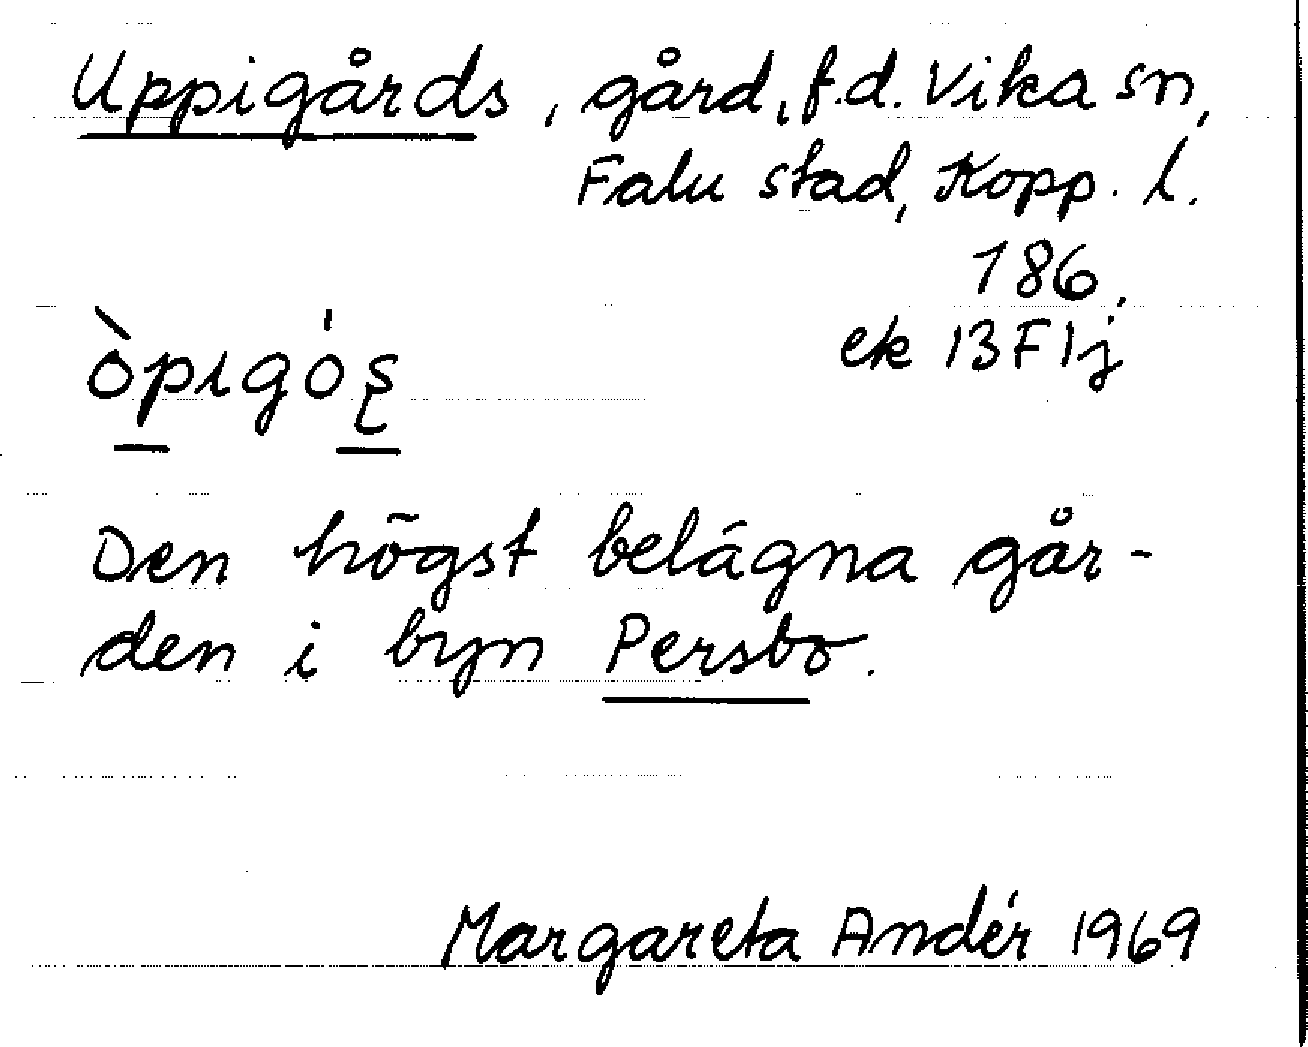 Uppigårds, gård, f.d. Vika sn,
Falu stad, Kopp. l.
186,
ek 13F1j
òpıgóş
Den högst belägna går-
den i byn Persbo.
Margareta Andér 1969